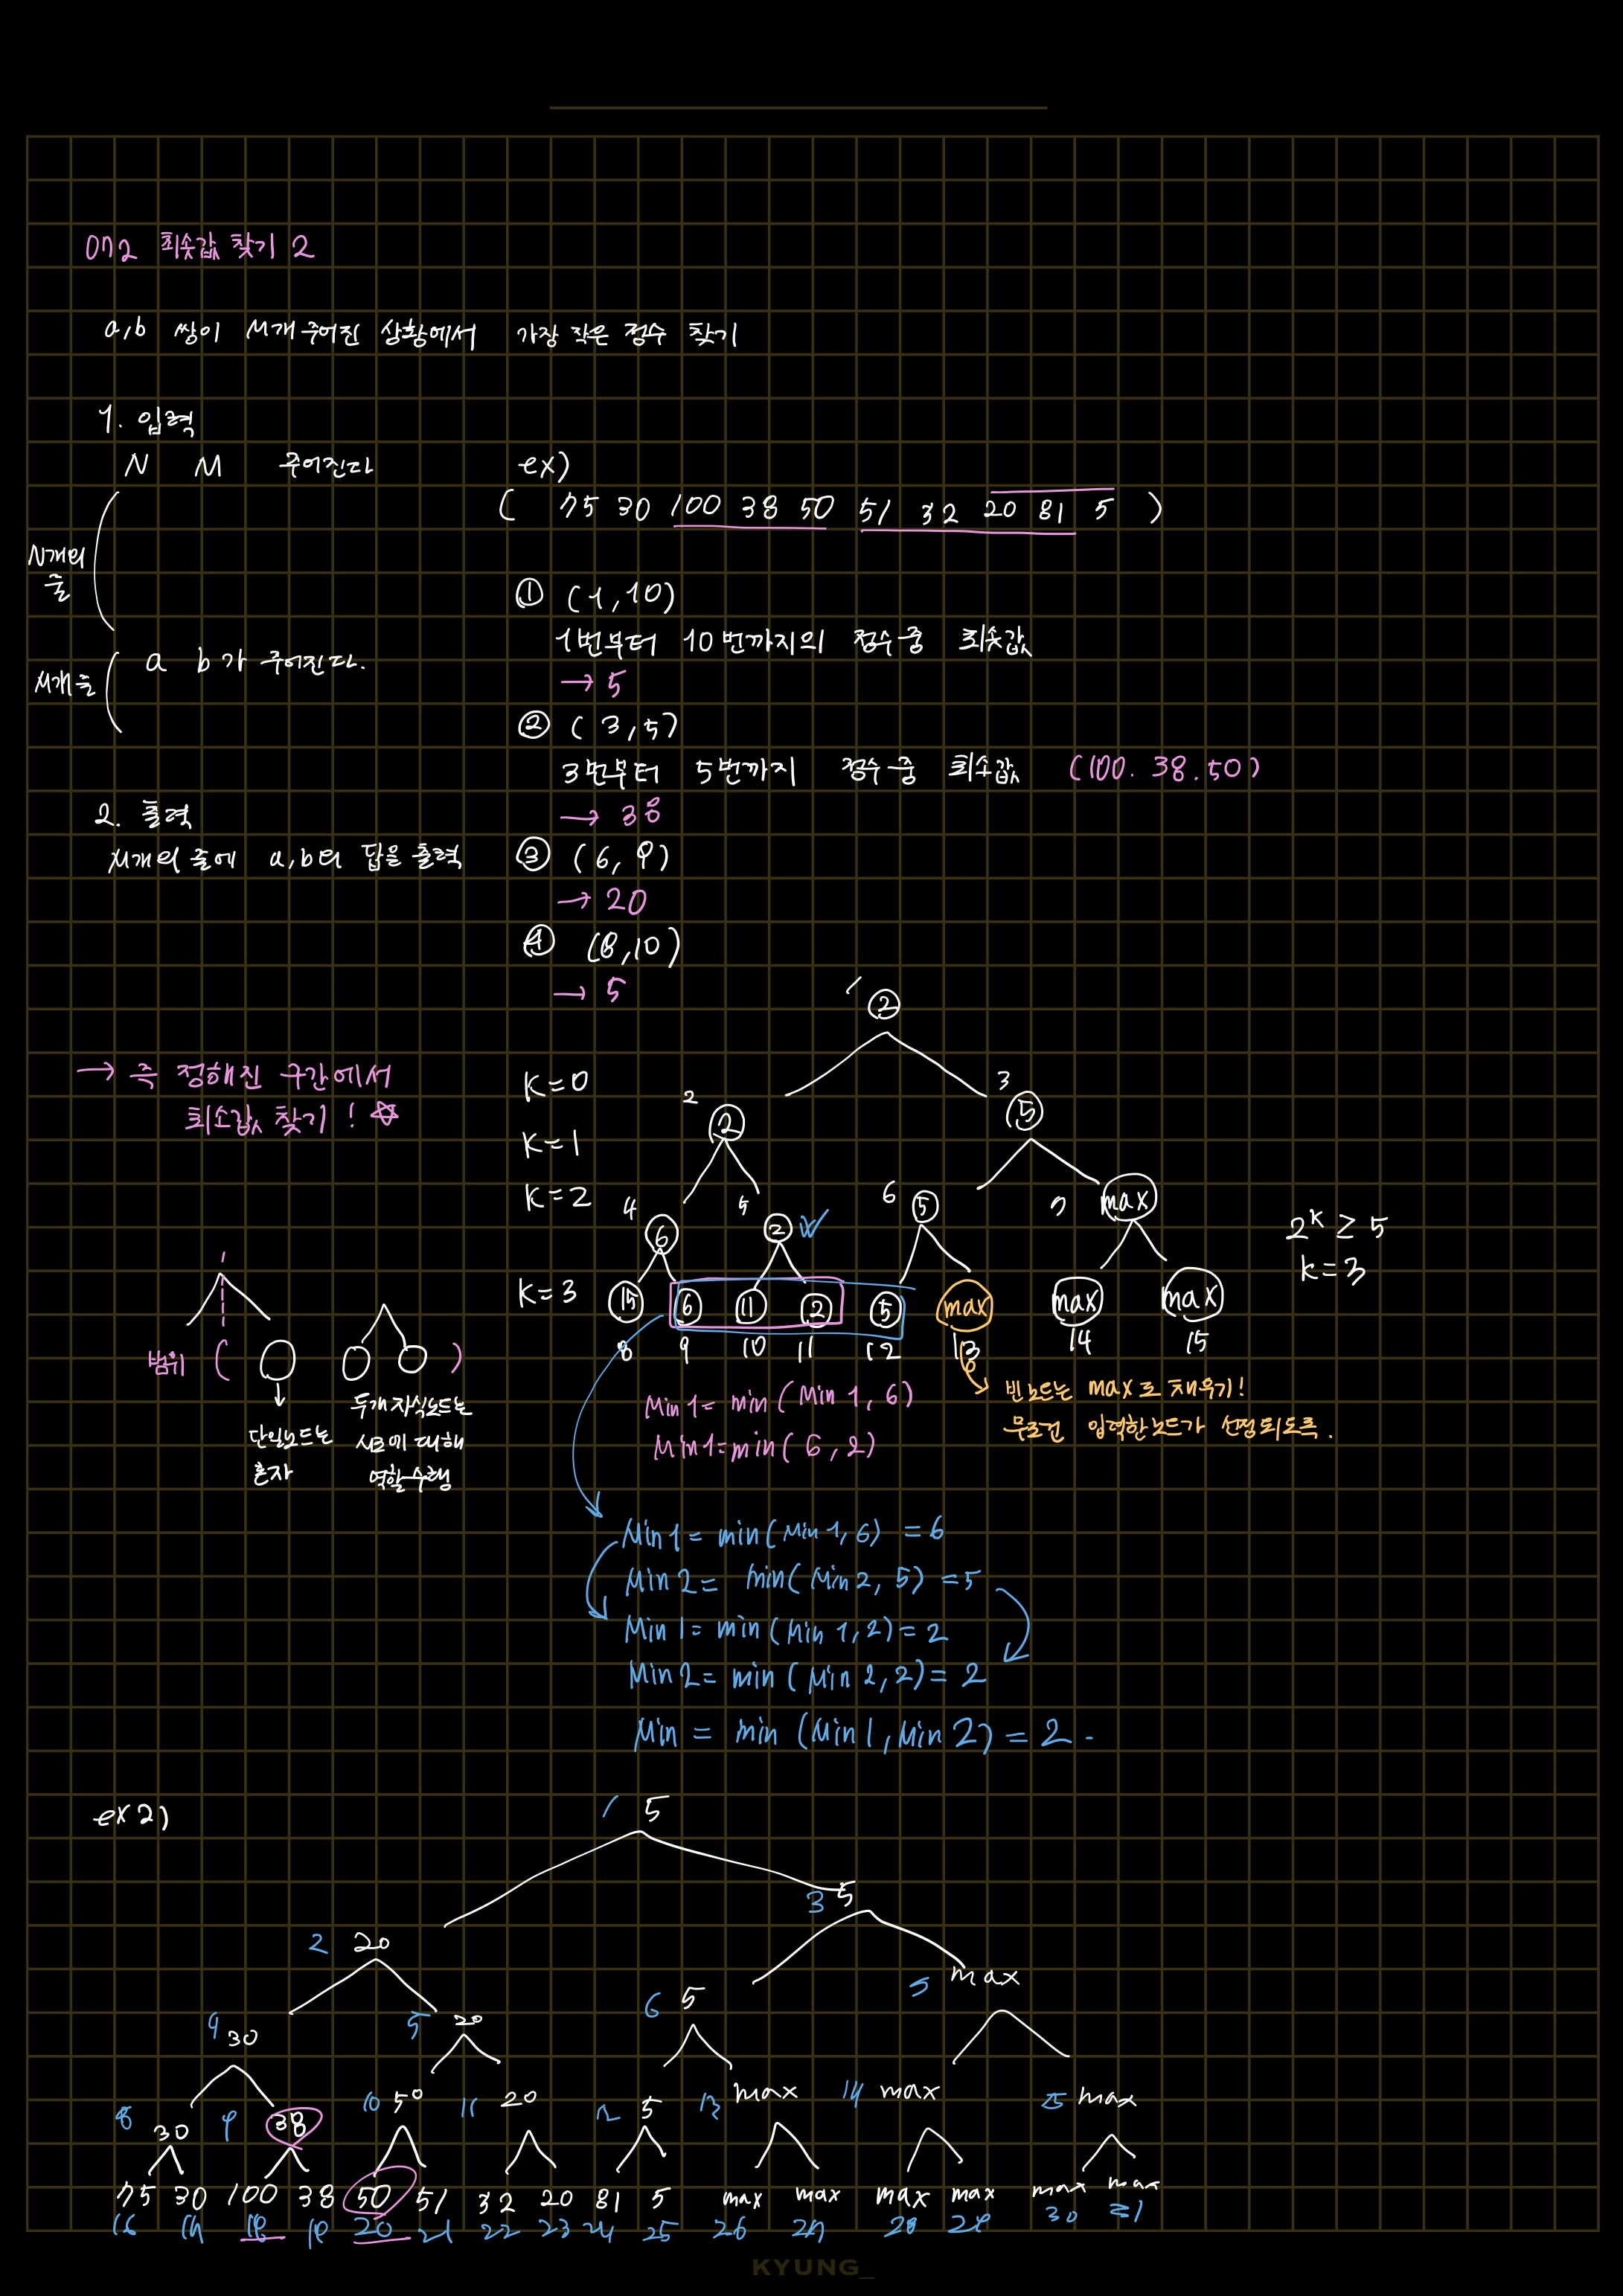 072 최솟값 찾기 2
a,b 쌍이 M개 주어진 상황에서 가장 작은 정수 찾기
1. 입력
N M 주어진다
N개의
줄
M개 줄
a b가 주어진다.
2. 출력
M개의 줄에 a,b의 답을 출력
ex)
( 75 30 100 38 50 51 32 20 81 5 )
① (1,10)
1번부터 10번까지의 정수 중 최솟값
→ 5
② (3,5)
3번부터 5번까지 정수 중 최소값 (100. 38. 50)
→ 38
③ (6, 9)
→ 20
④ (8,10)
→ 5
→ 즉 정해진 구간에서
최소값 찾기! ☆
범위 ( )
단일노드는
혼자
두개 자식노드는
서로에 대해
역할수행
1 ②
K=0
2 ② 3 ⑤
K=1
K=2
4 ⑥ 5 ② 6 ⑤ 7 max
K=3 ⑮ ⑥ ⑪ ② ⑤ max max max
8 9 10 11 12 13 14 15
2^k ≥ 5
k=3
빈노드는 max로 채우기!
무조건 입력한노드가 선정되도록.
Min1 = min (Min 1, 6)
Min1=min( 6, 2)
Min1 = min(Min 1, 6) = 6
Min 2 = min(Min 2, 5) = 5
Min 1 = min (Min 1, 2) = 2
Min 2 = min (Min 2, 2) = 2
Min = min (Min1, Min 2) = 2 -
ex 2)
1 5
2 20 3 5
4 30 5 20 6 5 max
8 30 9 38 10 50 11 20 12 5 13 max 14 max 15 max
75 30 100 38 50 51 32 20 81 5 max max max max max max
16 17 18 19 20 21 22 23 24 25 26 27 28 29 30 31
KYUNG_